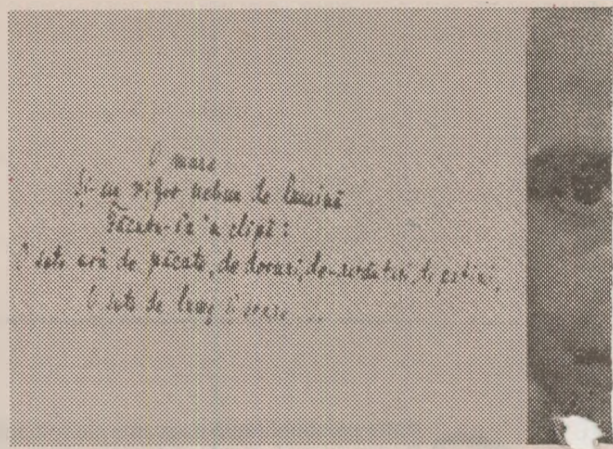 O mare
Și-un vifor nebun de lumină
Făcutu-s'a 'n clipă:
O sete eră de păcate, de doruri, de-avânturi, de patimi,
O sete de lume și soare...